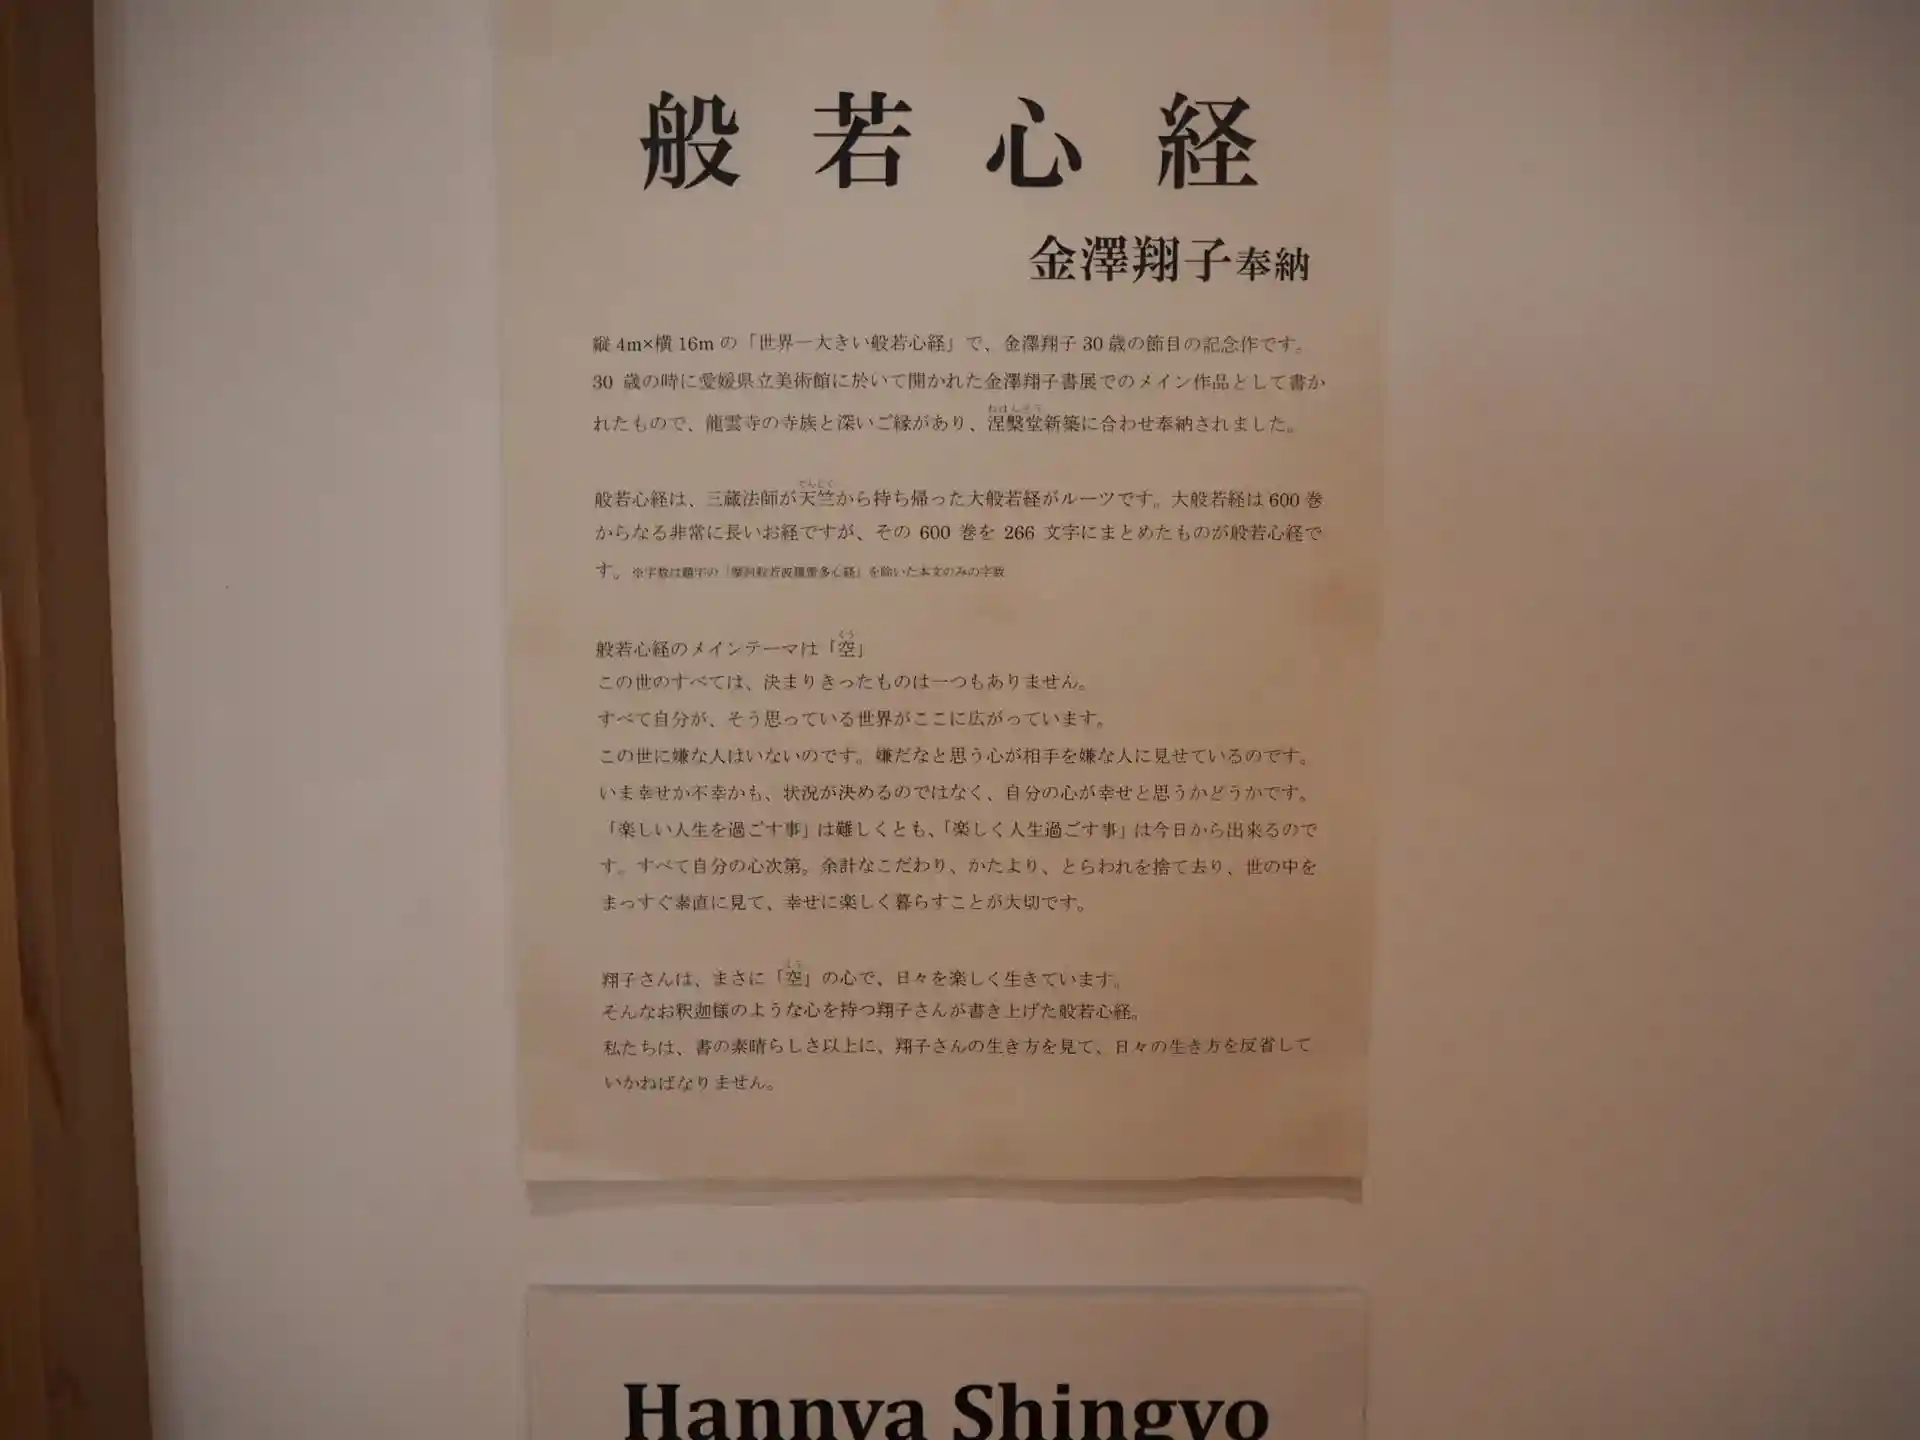 般若心経
金澤翔子奉納
縦4m×横16mの「世界一大きい般若心経」で、金澤翔子30歳の節目の記念作です。
30 歳の時に愛媛県立美術館に於いて開かれた金澤翔子書展でのメイン作品として書か
れたもので、龍雲寺の寺族と深いご縁があり、涅槃堂新築に合わせ奉納されました。
般若心経は、三蔵法師が天竺から持ち帰った大般若経がルーツです。大般若経は600巻
からなる非常に長いお経ですが、その 600 巻を 266 文字にまとめたものが般若心経で
す。※字数は題字の「摩訶般若波羅蜜多心経」を除いた本文のみの字数
般若心経のメインテーマは「空」
この世のすべては、決まりきったものは一つもありません。
すべて自分が、そう思っている世界がここに広がっています。
この世に嫌な人はいないのです。嫌だなと思う心が相手を嫌な人に見せているのです。
いま幸せか不幸かも、状況が決めるのではなく、自分の心が幸せと思うかどうかです。
「楽しい人生を過ごす事」は難しくとも、「楽しく人生過ごす事」は今日から出来るので
す。すべて自分の心次第。余計なこだわり、かたより、とらわれを捨て去り、世の中を
まっすぐ素直に見て、幸せに楽しく暮らすことが大切です。
翔子さんは、まさに「空」の心で、日々を楽しく生きています。
そんなお釈迦様のような心を持つ翔子さんが書き上げた般若心経。
私たちは、書の素晴らしさ以上に、翔子さんの生き方を見て、日々の生き方を反省して
いかねばなりません。
Hannya Shingyo